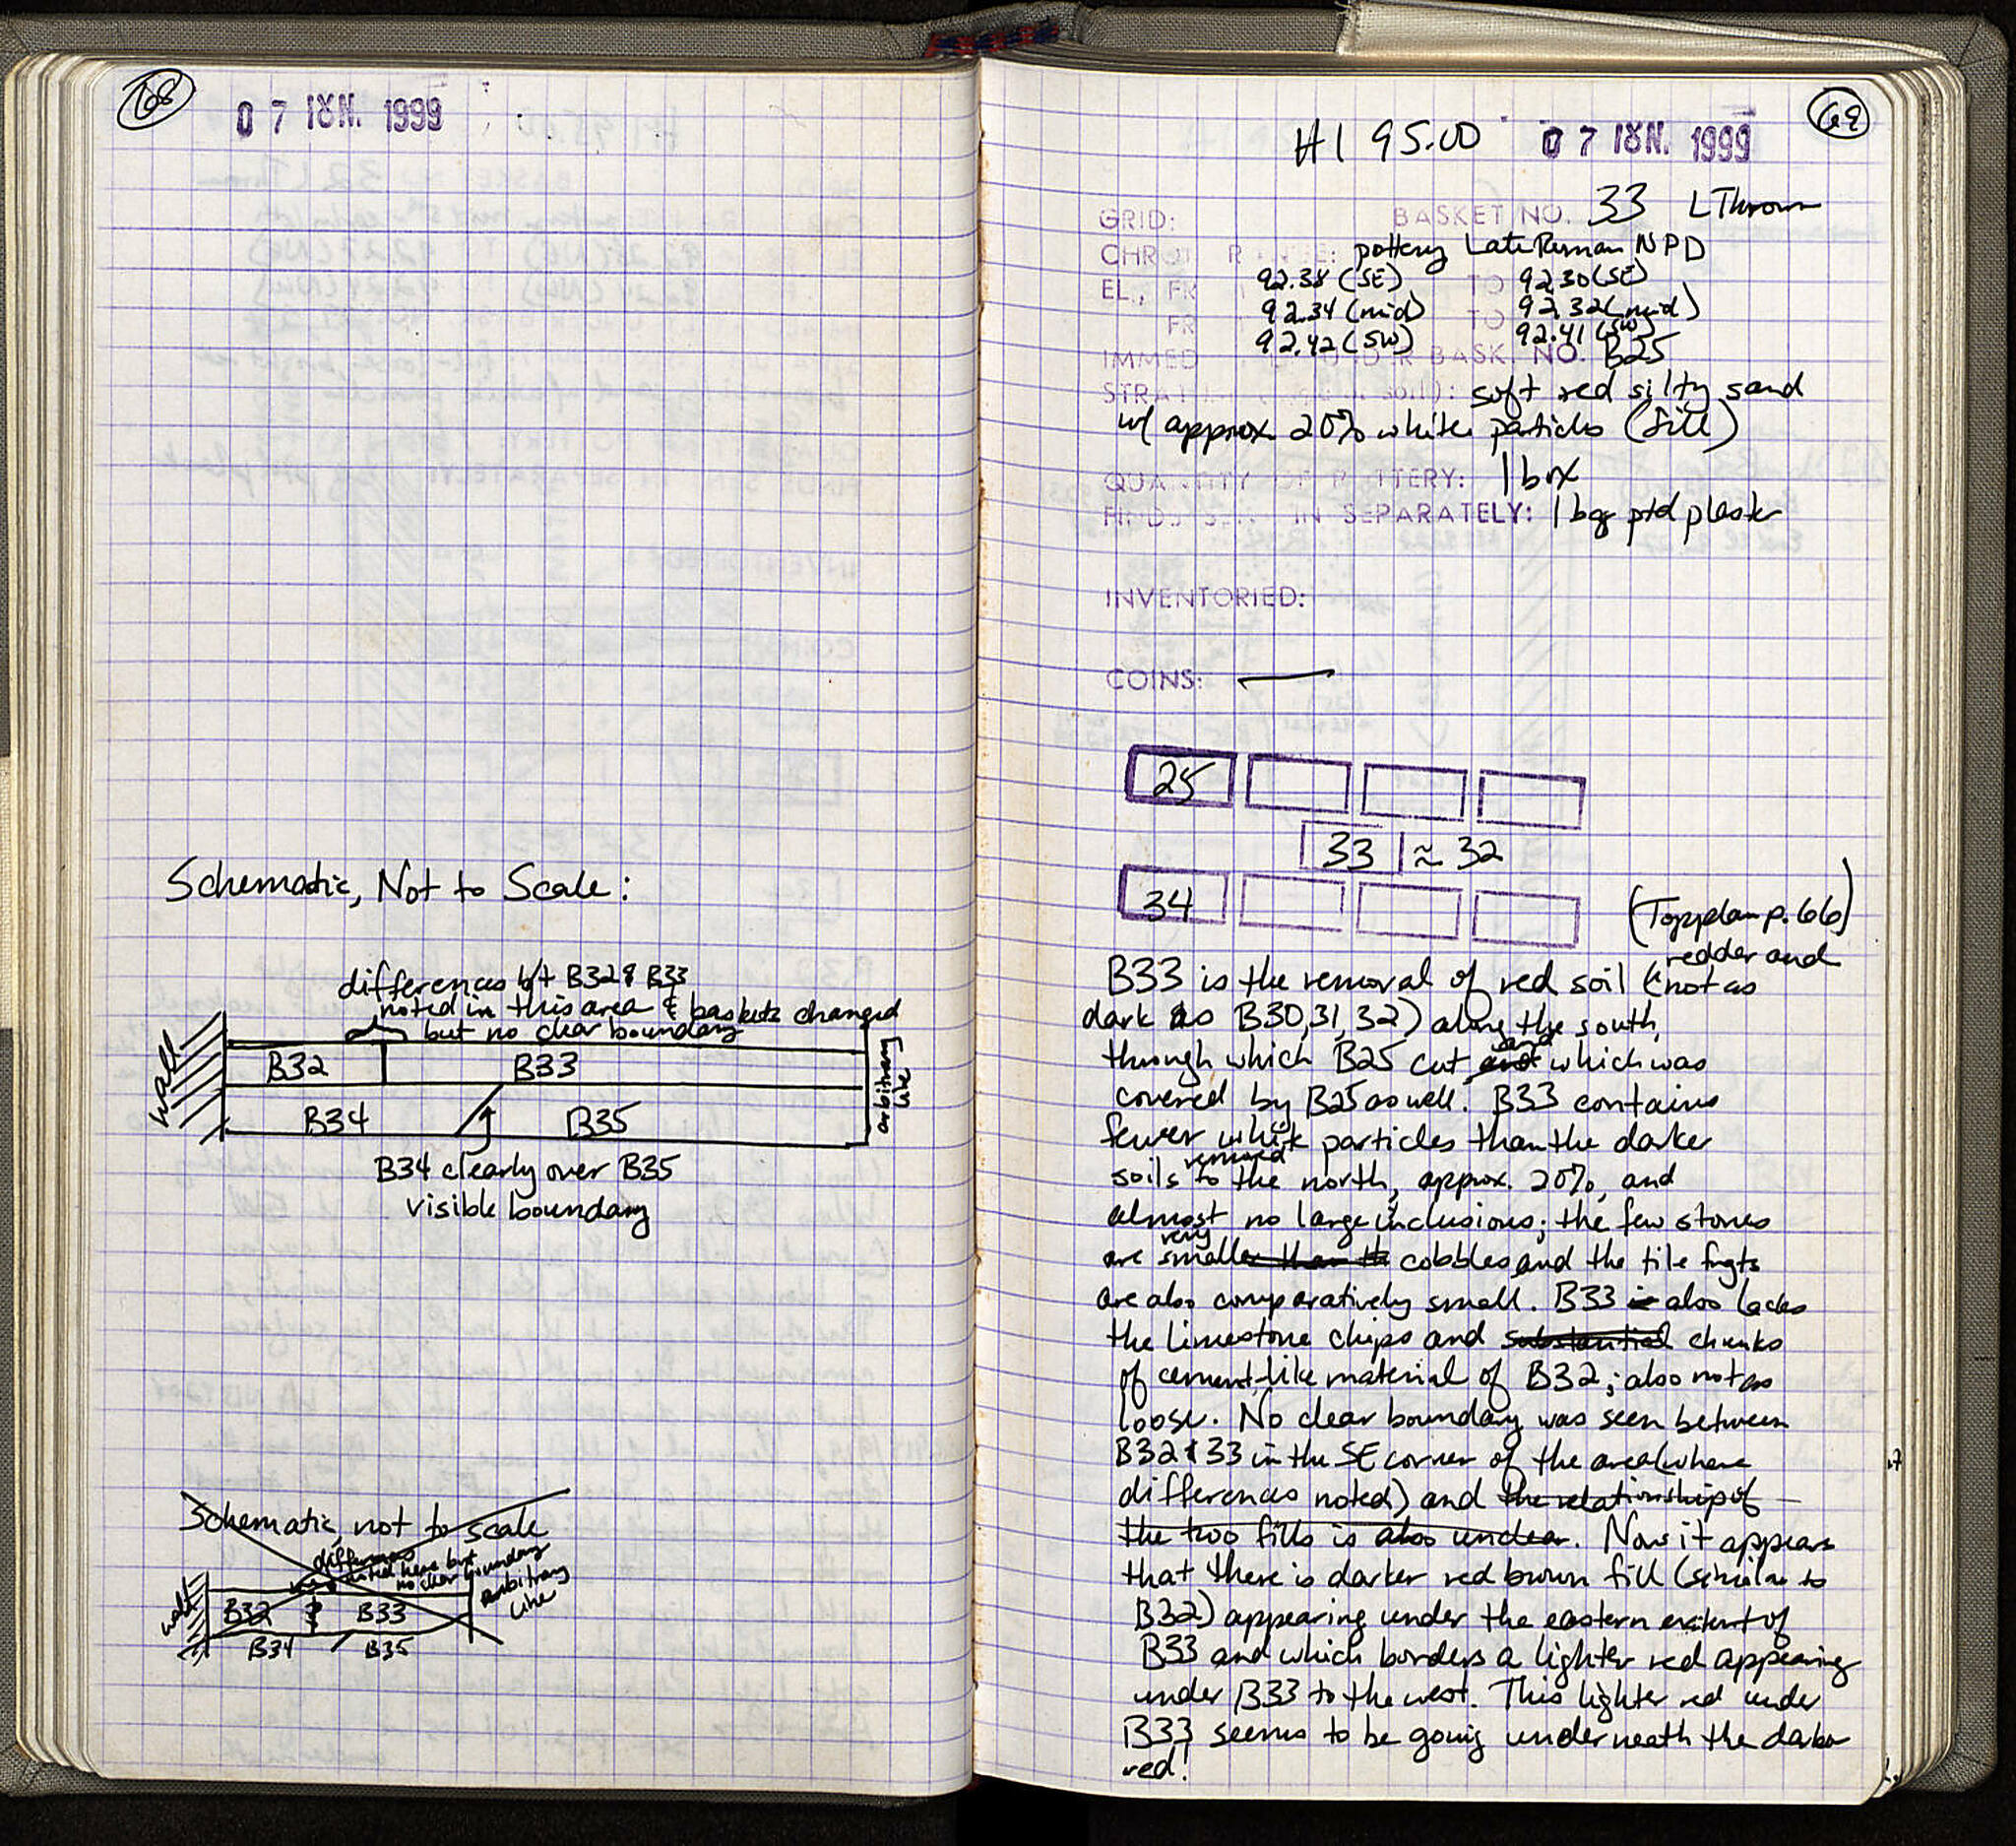 68
07 ΙΟΥΝ. 1999
Schematic, Not to Scale:
differences b/t B32 & B33
noted in this area & baskets changed
but no clear boundary
wall
B32
B33
arbitrary
line
B34
B35
B34 clearly over B35
visible boundary
Schematic, not to scale
differences
noted here but
no clear boundary
arbitrary
line
wall
B32
B33
B34
B35
69
H1 95.00 07 ΙΟΥΝ. 1999
GRID: BASKET NO. 33 L Thrown
pottery Late Roman NPD
EL., FR 92.38 (SE) TO 92.30 (SE)
92.34 (mid) 92.32 (mid)
FR 92.42 (SW) TO 92.41 (SW)
IMMED BASK. NO. B25
soft red silty sand
w/ approx. 20% white particles (fill)
QUANTITY OF POTTERY: 1 box
FINDS SENT IN SEPARATELY: 1 bag ptd plaster
INVENTORIED:
COINS: —
25
33 ≈ 32
34
(Topplan p. 66)
redder and
B33 is the removal of red soil (not as
dark as B30, 31, 32) along the south,
through which B25 cut and and which was
covered by B25 as well. B33 contains
fewer white particles than the darker
soils removed to the north, approx. 20%, and
almost no large inclusions; the few stones
are very smaller than the cobbles and the tile fragts
are also comparatively small. B33 is also lacks
the limestone chips and substantial chunks
of cement-like material of B32; also not as
loose. No clear boundary was seen between
B32 & 33 in the SE corner of the area (where
differences noted) and the relationship of
the two fills is also unclear. Now it appears
that there is darker red brown fill (similar to
B32) appearing under the eastern extent of
B33 and which borders a lighter red appearing
under B33 to the west. This lighter red under
B33 seems to be going underneath the darker
red!